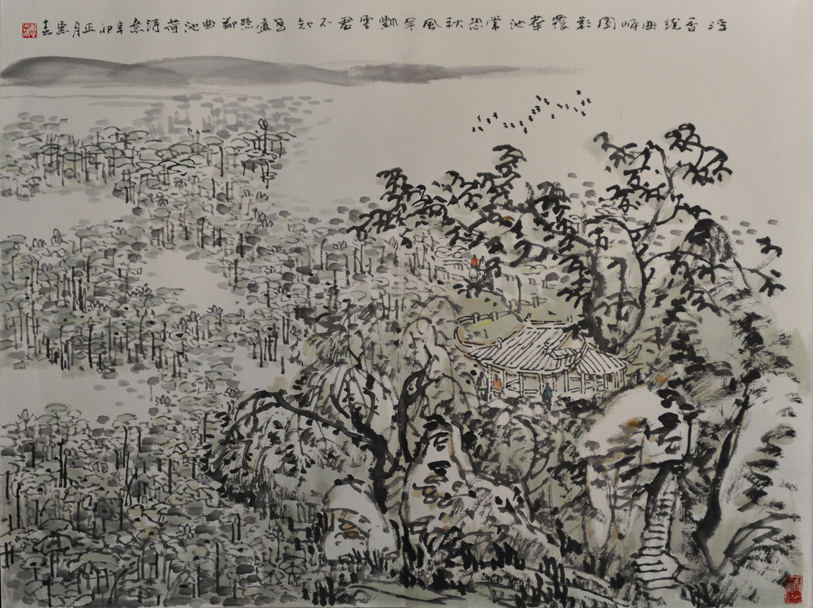 浮香绕曲岸圆影覆華池常恐秋風早飘零君不知寫盧照鄰曲池荷詩意辛卯正月